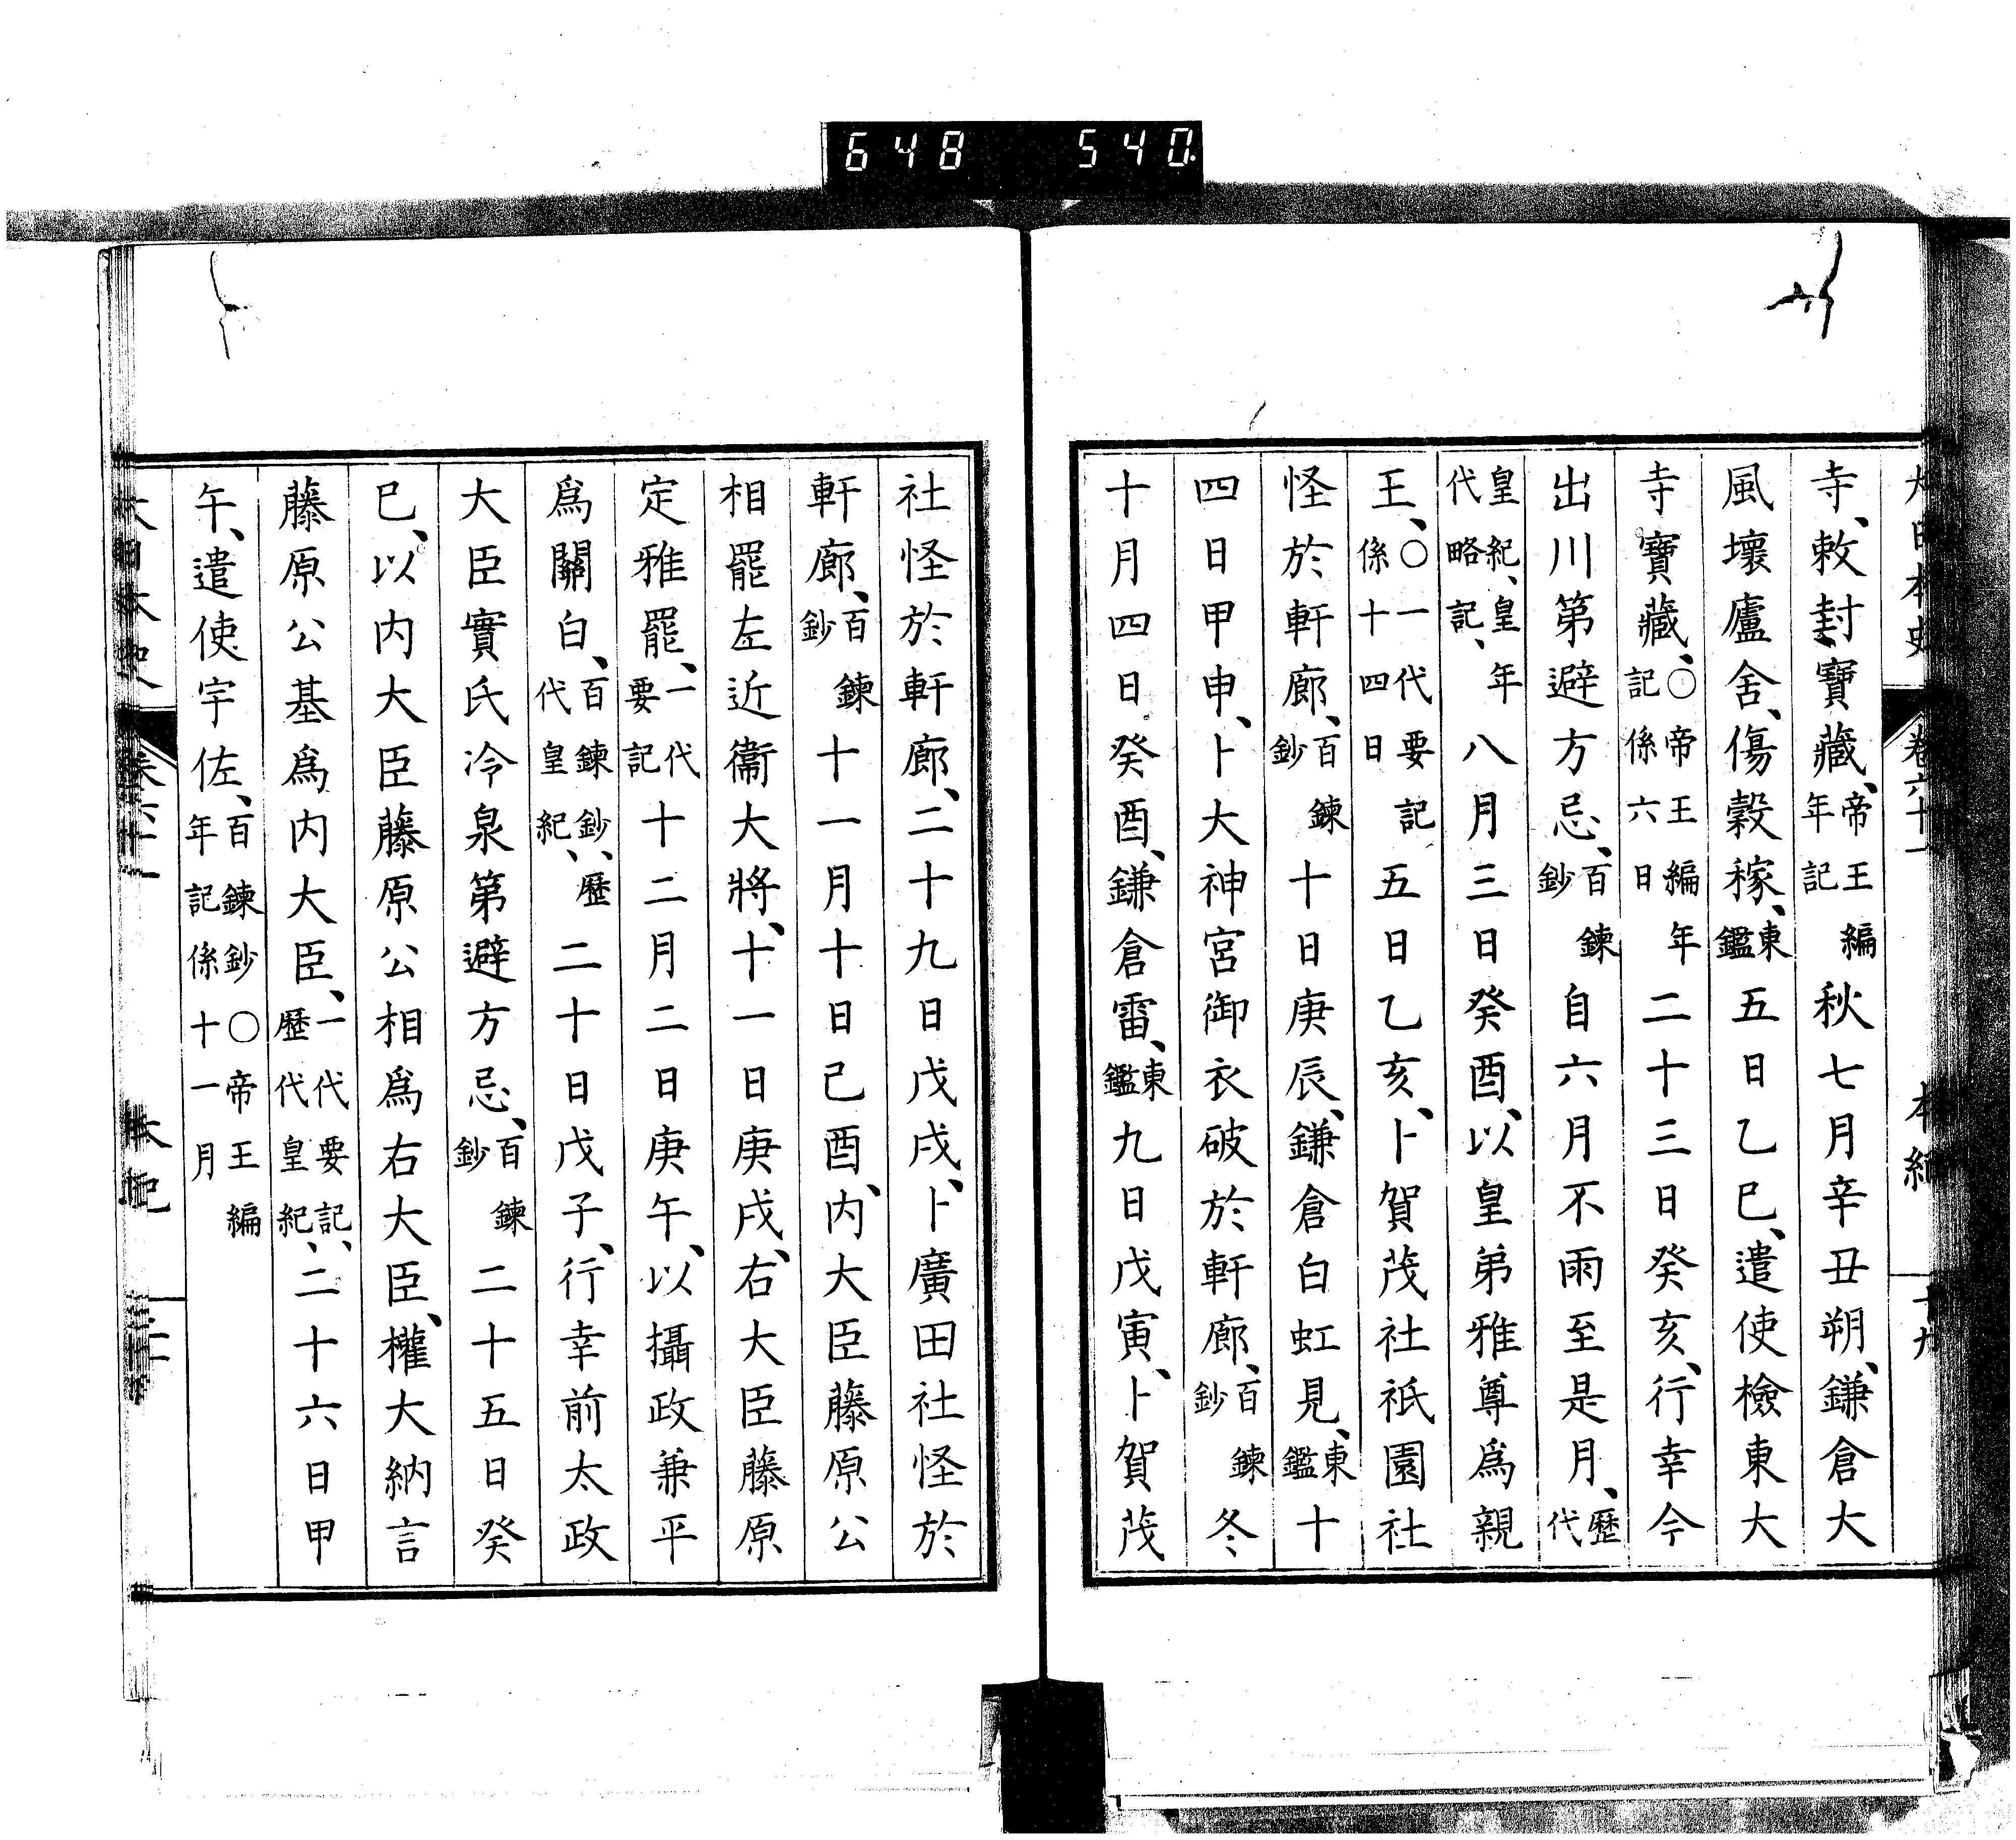 648 540
大日本史 卷六十一 本紀 十九
寺、敕封寶藏、帝王編年記秋七月辛丑朔、鎌倉大
風壞廬舍、傷穀稼、東鑑五日乙巳、遣使檢東大
寺寶藏、〇帝王編年記係六日二十三日癸亥、行幸今
出川第避方忌、百鍊鈔自六月不雨至是月、歷代
皇紀、皇年代略記、八月三日癸酉、以皇弟雅尊爲親
王、〇一代要記係十四日五日乙亥、卜賀茂社祇園社
怪於軒廊、百鍊鈔十日庚辰、鎌倉白虹見、東鑑十
四日甲申、卜大神宮御衣破於軒廊、百鍊鈔冬
十月四日癸酉、鎌倉雷、東鑑九日戊寅、卜賀茂
社怪於軒廊、二十九日戊戌、卜廣田社怪於
軒廊、百鍊鈔十一月十日己酉、內大臣藤原公
相罷左近衞大將、十一日庚戌、右大臣藤原
定雅罷、一代要記十二月二日庚午、以攝政兼平
爲關白、百鍊鈔、歷代皇紀、二十日戊子、行幸前太政
大臣實氏冷泉第避方忌、百鍊鈔二十五日癸
巳、以內大臣藤原公相爲右大臣、權大納言
藤原公基爲內大臣、一代要記、歷代皇紀、二十六日甲
午、遣使宇佐、百鍊鈔〇帝王編年記係十一月
大日本史 卷六十一 本紀